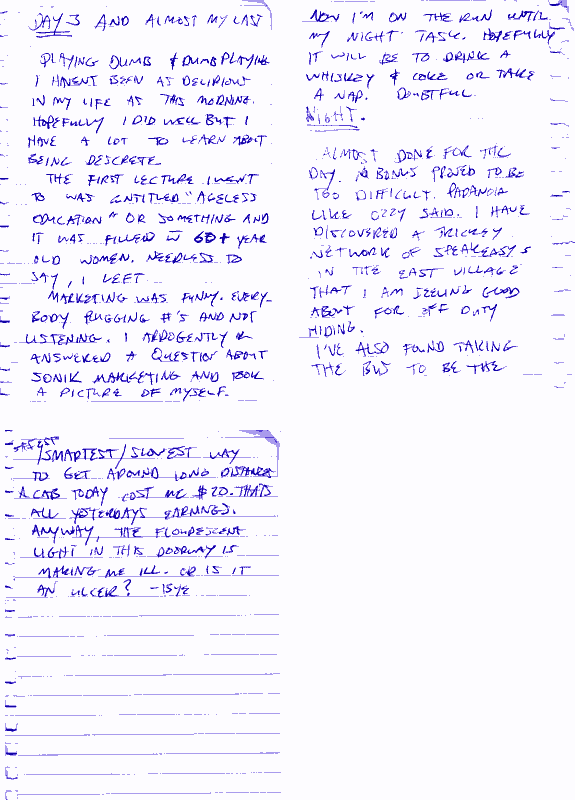 DAY 3 AND ALMOST MY LAST
PLAYING DUMB & DUMB PLAYING
I HAVENT BEEN AS DELIRIOUS
IN MY LIFE AS THIS MORNING.
HOPEFULLY I DID WELL BUT I
HAVE A LOT TO LEARN ABOUT
BEING DESCRETE
THE FIRST LECTURE I WENT
TO WAS ENTITLED "AGELESS
EDUCATION" OR SOMETHING AND
IT WAS FILLED W 60+ YEAR
OLD WOMEN. NEEDLESS TO
SAY, I LEFT
MARKETING WAS FUNNY. EVERY-
BODY PLUGGING #'S AND NOT
LISTENING. I ARROGENTLY
ANSWERED A QUESTION ABOUT
SONIK MARKETING AND TOOK
A PICTURE OF MYSELF.
NOW I'M ON THE RUN UNTIL
MY NIGHT TASK. HOPEFULLY
IT WILL BE TO DRINK A
WHISKEY & COKE OR TAKE
A NAP. DOUBTFUL.
NIGHT.
ALMOST DONE FOR THE
DAY. A BONUS PROVED TO BE
TOO DIFFICULT. PARANOIA
LIKE OZZY SAID. I HAVE
DISCOVERED A TRICKEY
NETWORK OF SPEAKEASYS
IN THE EAST VILLAGE
THAT I AM FEELING GOOD
ABOUT FOR OFF DUTY
HIDING.
I'VE ALSO FOUND TAKING
THE BUS TO BE THE
SAFEST/SMARTEST/SLOWEST WAY
TO GET AROUND LONG DISTANCES
A CAB TODAY COST ME $20. THATS
ALL YESTERDAYS EARNINGS.
ANYWAY, THE FLOURESCENT
LIGHT IN THIS DOORWAY IS
MAKING ME ILL. OR IS IT
AN ULCER?